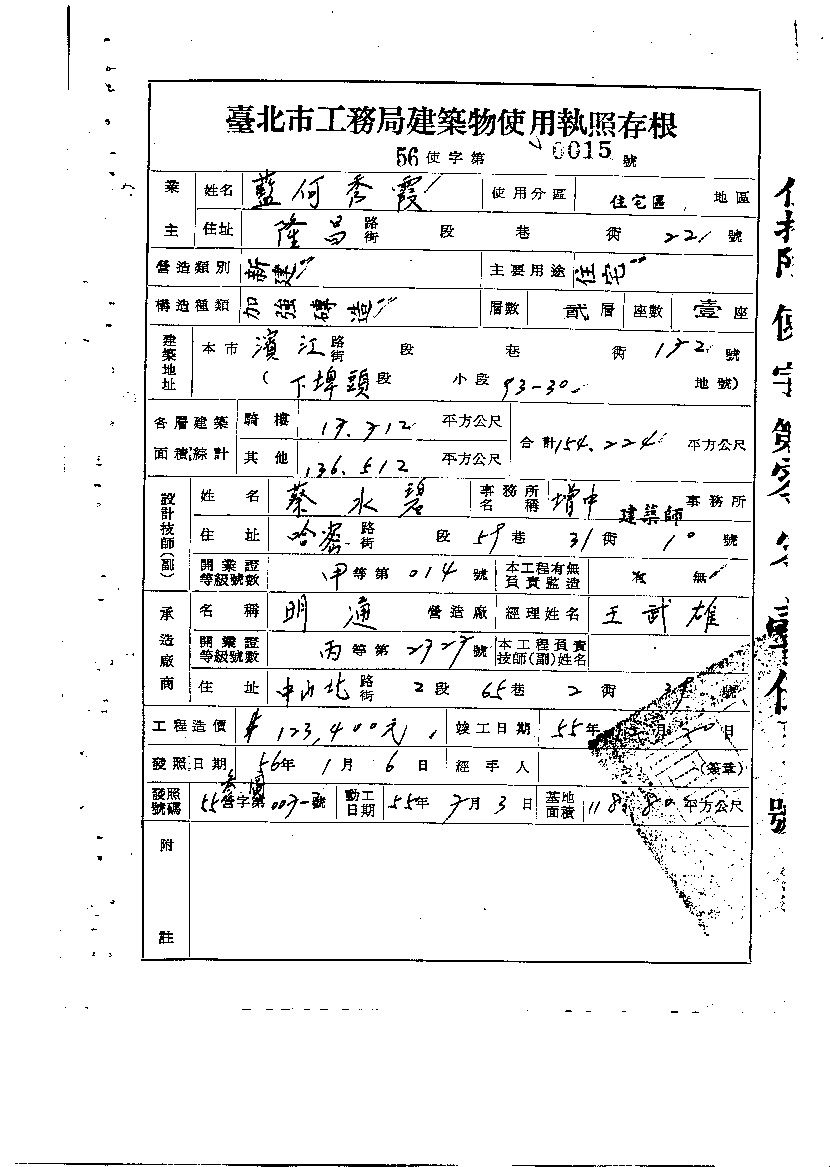 臺北市工務局建築物使用執照存根
56使字第0015號
業主 姓名 藍何秀霞 使用分區 住宅區 地區
住址 隆昌 路街 段 巷 衖 221 號
營造類別 新建 主要用途 住宅
構造種類 加強磚造 層數 貳層 座數 壹座
建築地址 本市 濱江 路街 段 巷 衖 號
(下埤頭段 小段 93-30 地號)
各層建築面積綜計 騎樓 平方公尺 合計154.224平方公尺
其他 136.512 平方公尺
設計技師(副) 姓名 蔡水碧 事務所名稱 增中建築師事務所
住址 哈密 路街 段 59巷 31衖 10號
開業證等級號數 甲等第014號 本工程有無負責監造 有 無
承造廠商 名稱 明通 營造廠 經理姓名 王武雄
開業證等級號數 丙等第 號 本工程負責技師(副)姓名
住址 中山北 路街 2段 65巷 2衖 號
工程造價 123,400元 竣工日期 55年 月 日
發照日期 56年1月6日 經手人 (簽章)
發照號碼 55營字第 號 動工日期 55年 月3日 基地面積 118.80平方公尺
附註